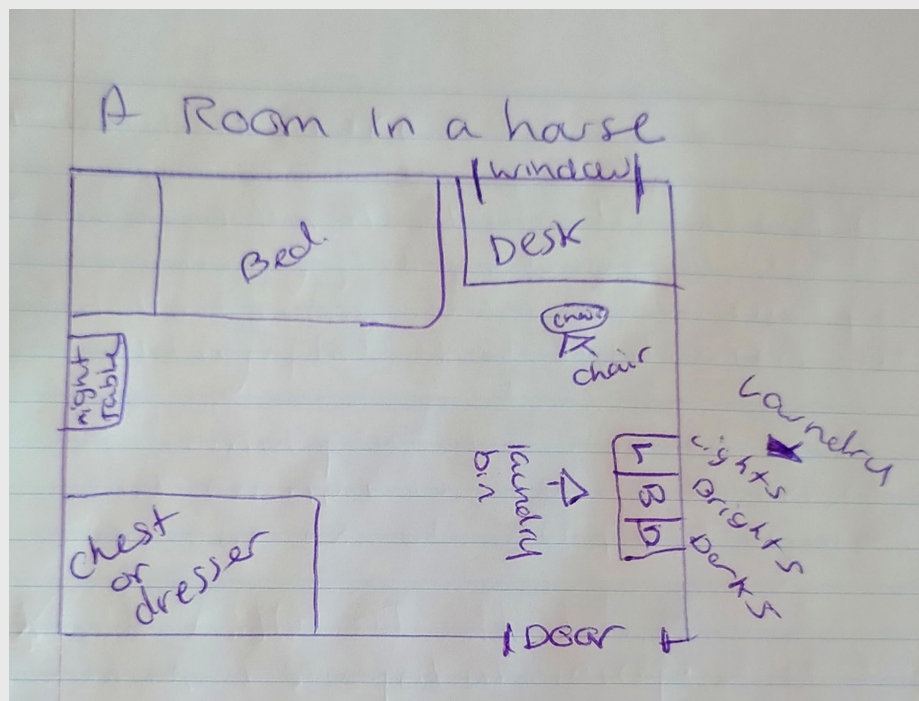 A Room in a house
window
Bed
Desk
chair
chair
night
table
Laundry
laundry
bin
L
B
D
Lights
Brights
Darks
chest
or
dresser
Door